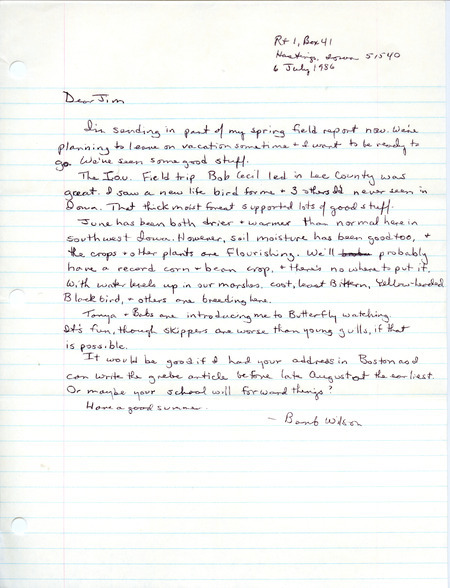 Rt 1, Box 41
Hastings, Iowa 51540
6 July 1986
Dear Jim
I'm sending in part of my spring field report now. We're
planning to leave on vacation sometime + I want to be ready to
go. We've seen some good stuff.
The I.O.U. Field trip Bob Cecil led in Lee County was
great. I saw a new life bird for me + 3 others I'd never seen in
Iowa. That thick moist forest supported lots of good stuff.
June has been both drier + warmer than normal here in
southwest Iowa. However, soil moisture has been good too, +
the crops + other plants are flourishing. We'll probably
have a record corn + bean crop, + there's no where to put it.
With water levels up in our marshes, coot, Least Bittern, Yellow-headed
Blackbird, + others are breeding here.
Tanya + Babs are introducing me to Butterfly watching.
It's fun, though skippers are worse than young gulls, if that
is possible.
It would be good if I had your address in Boston as I
can write the grebe article before late August at the earliest.
Or maybe your school will forward things?
Have a good summer.
- Barb Wilson